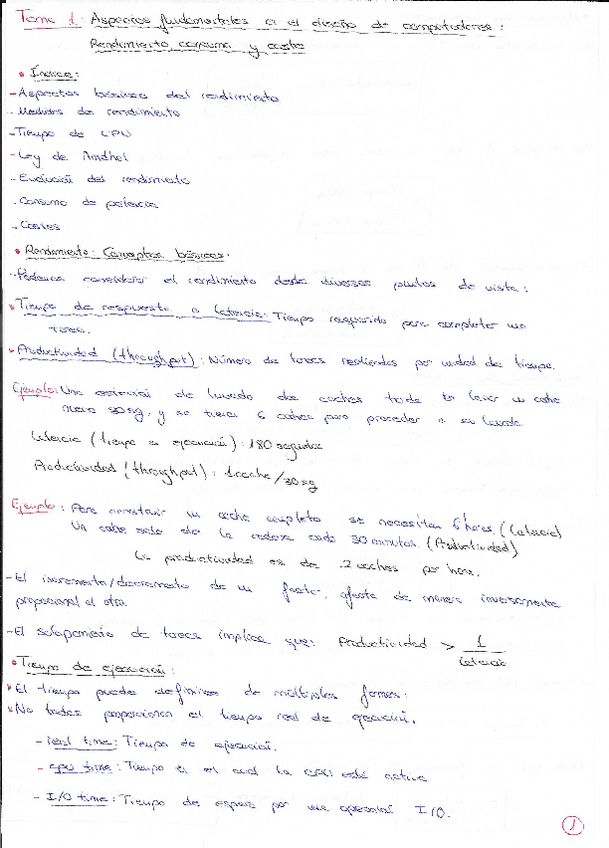 Tema 1: Aspectos fundamentales en el diseño de computadores:
Rendimiento, consumo y coste
• Índice:
- Aspectos básicos del rendimiento
- Medidas de rendimiento
- Tiempo de CPU
- Ley de Amdhal
- Evolución del rendimiento
- Consumo de potencia
- Costes
• Rendimiento: Conceptos básicos.
- Podemos considerar el rendimiento desde diversos puntos de vista:
• Tiempo de respuesta o latencia: Tiempo requerido para completar una
tarea.
• Productividad (throughput): Número de tareas realizadas por unidad de tiempo.
Ejemplo: Una estación de lavado de coches tarda en lavar un coche
nuevo 30 sg. y se tienen 6 coches para proceder a su lavado.
Latencia (tiempo de ejecución): 180 segundos
Productividad (throughput): 1 coche/30 sg
Ejemplo: Para construir un coche completo se necesitan 6 horas. (Latencia)
Un coche sale de la cadena cada 30 minutos. (Productividad)
La productividad es de 2 coches por hora.
- El incremento/decremento de un factor, afecta de manera inversamente
proporcional al otro.
- El solapamiento de tareas implica que: Productividad > 1
Latencia
• Tiempo de ejecución:
• El tiempo puede definirse de múltiples formas:
• No todas proporcionan el tiempo real de ejecución.
- real time: Tiempo de ejecución.
- cpu time: Tiempo en el cual la CPU está activa
- I/O time: Tiempo de espera por una operación I/O.
1